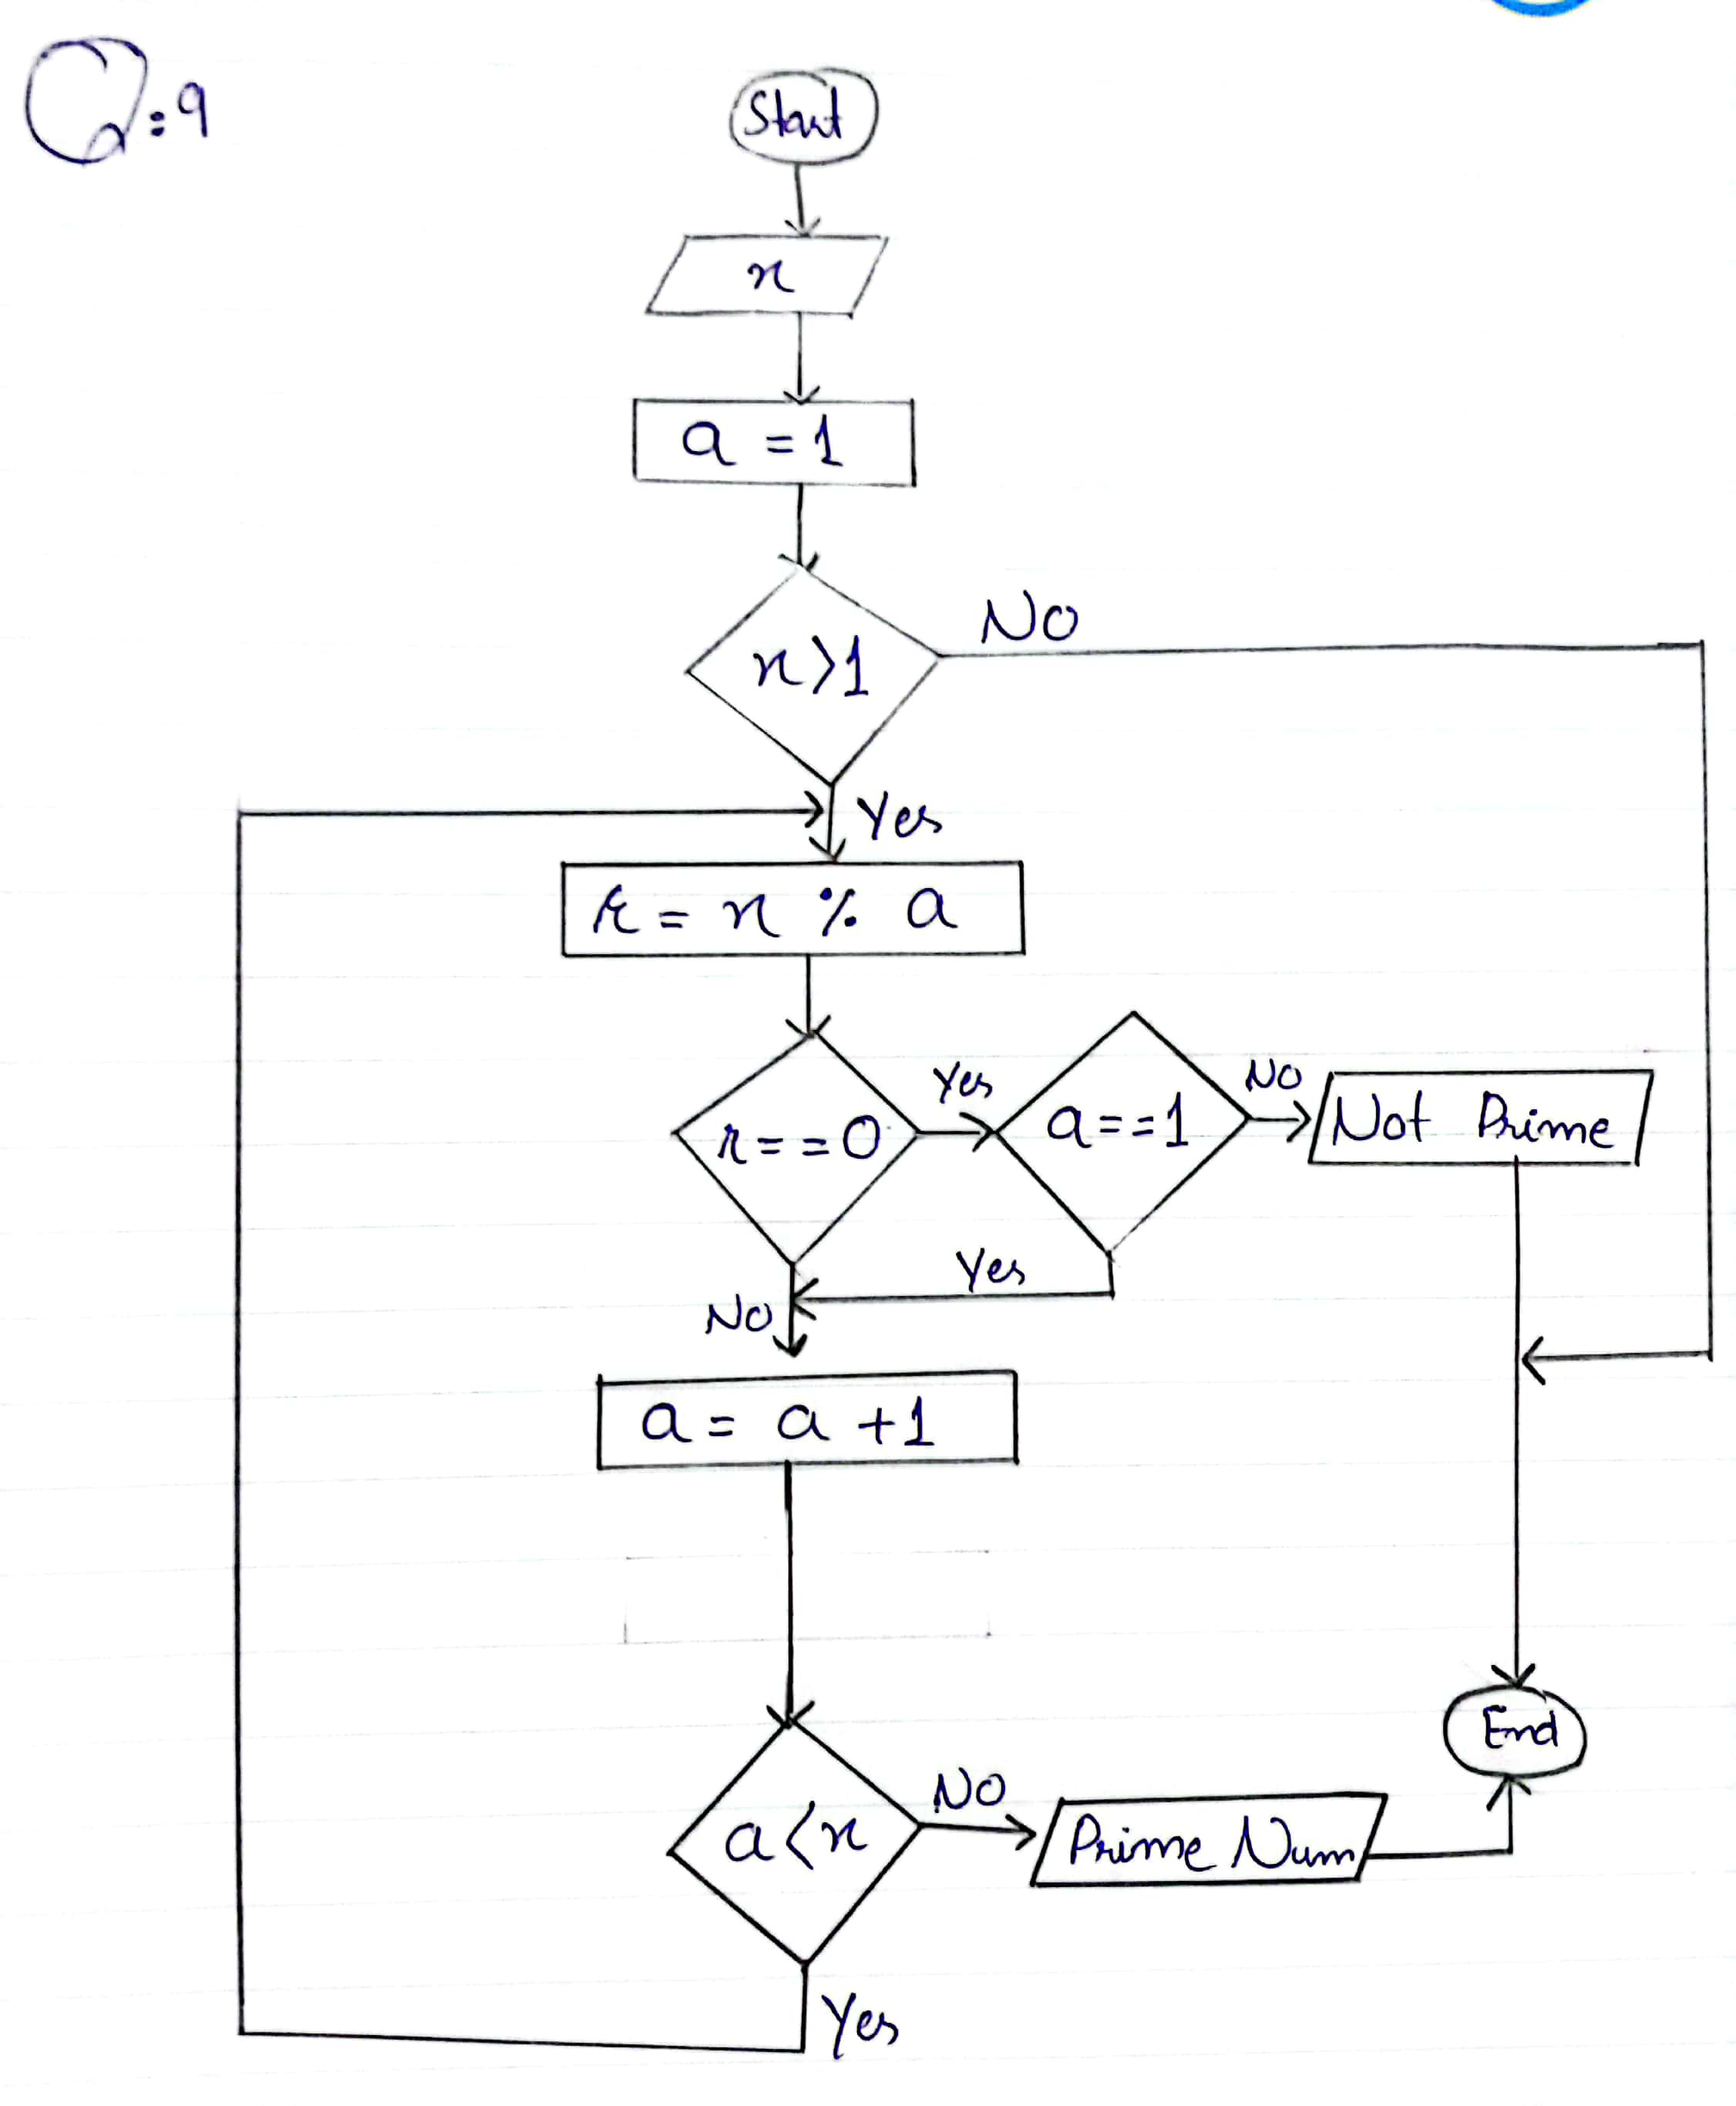 Q:9
Start
n
a = 1
n>1
NO
Yes
r = n % a
r==0
Yes
a==1
NO
Not Prime
Yes
NO
a = a +1
End
a<n
NO
Prime Num
Yes